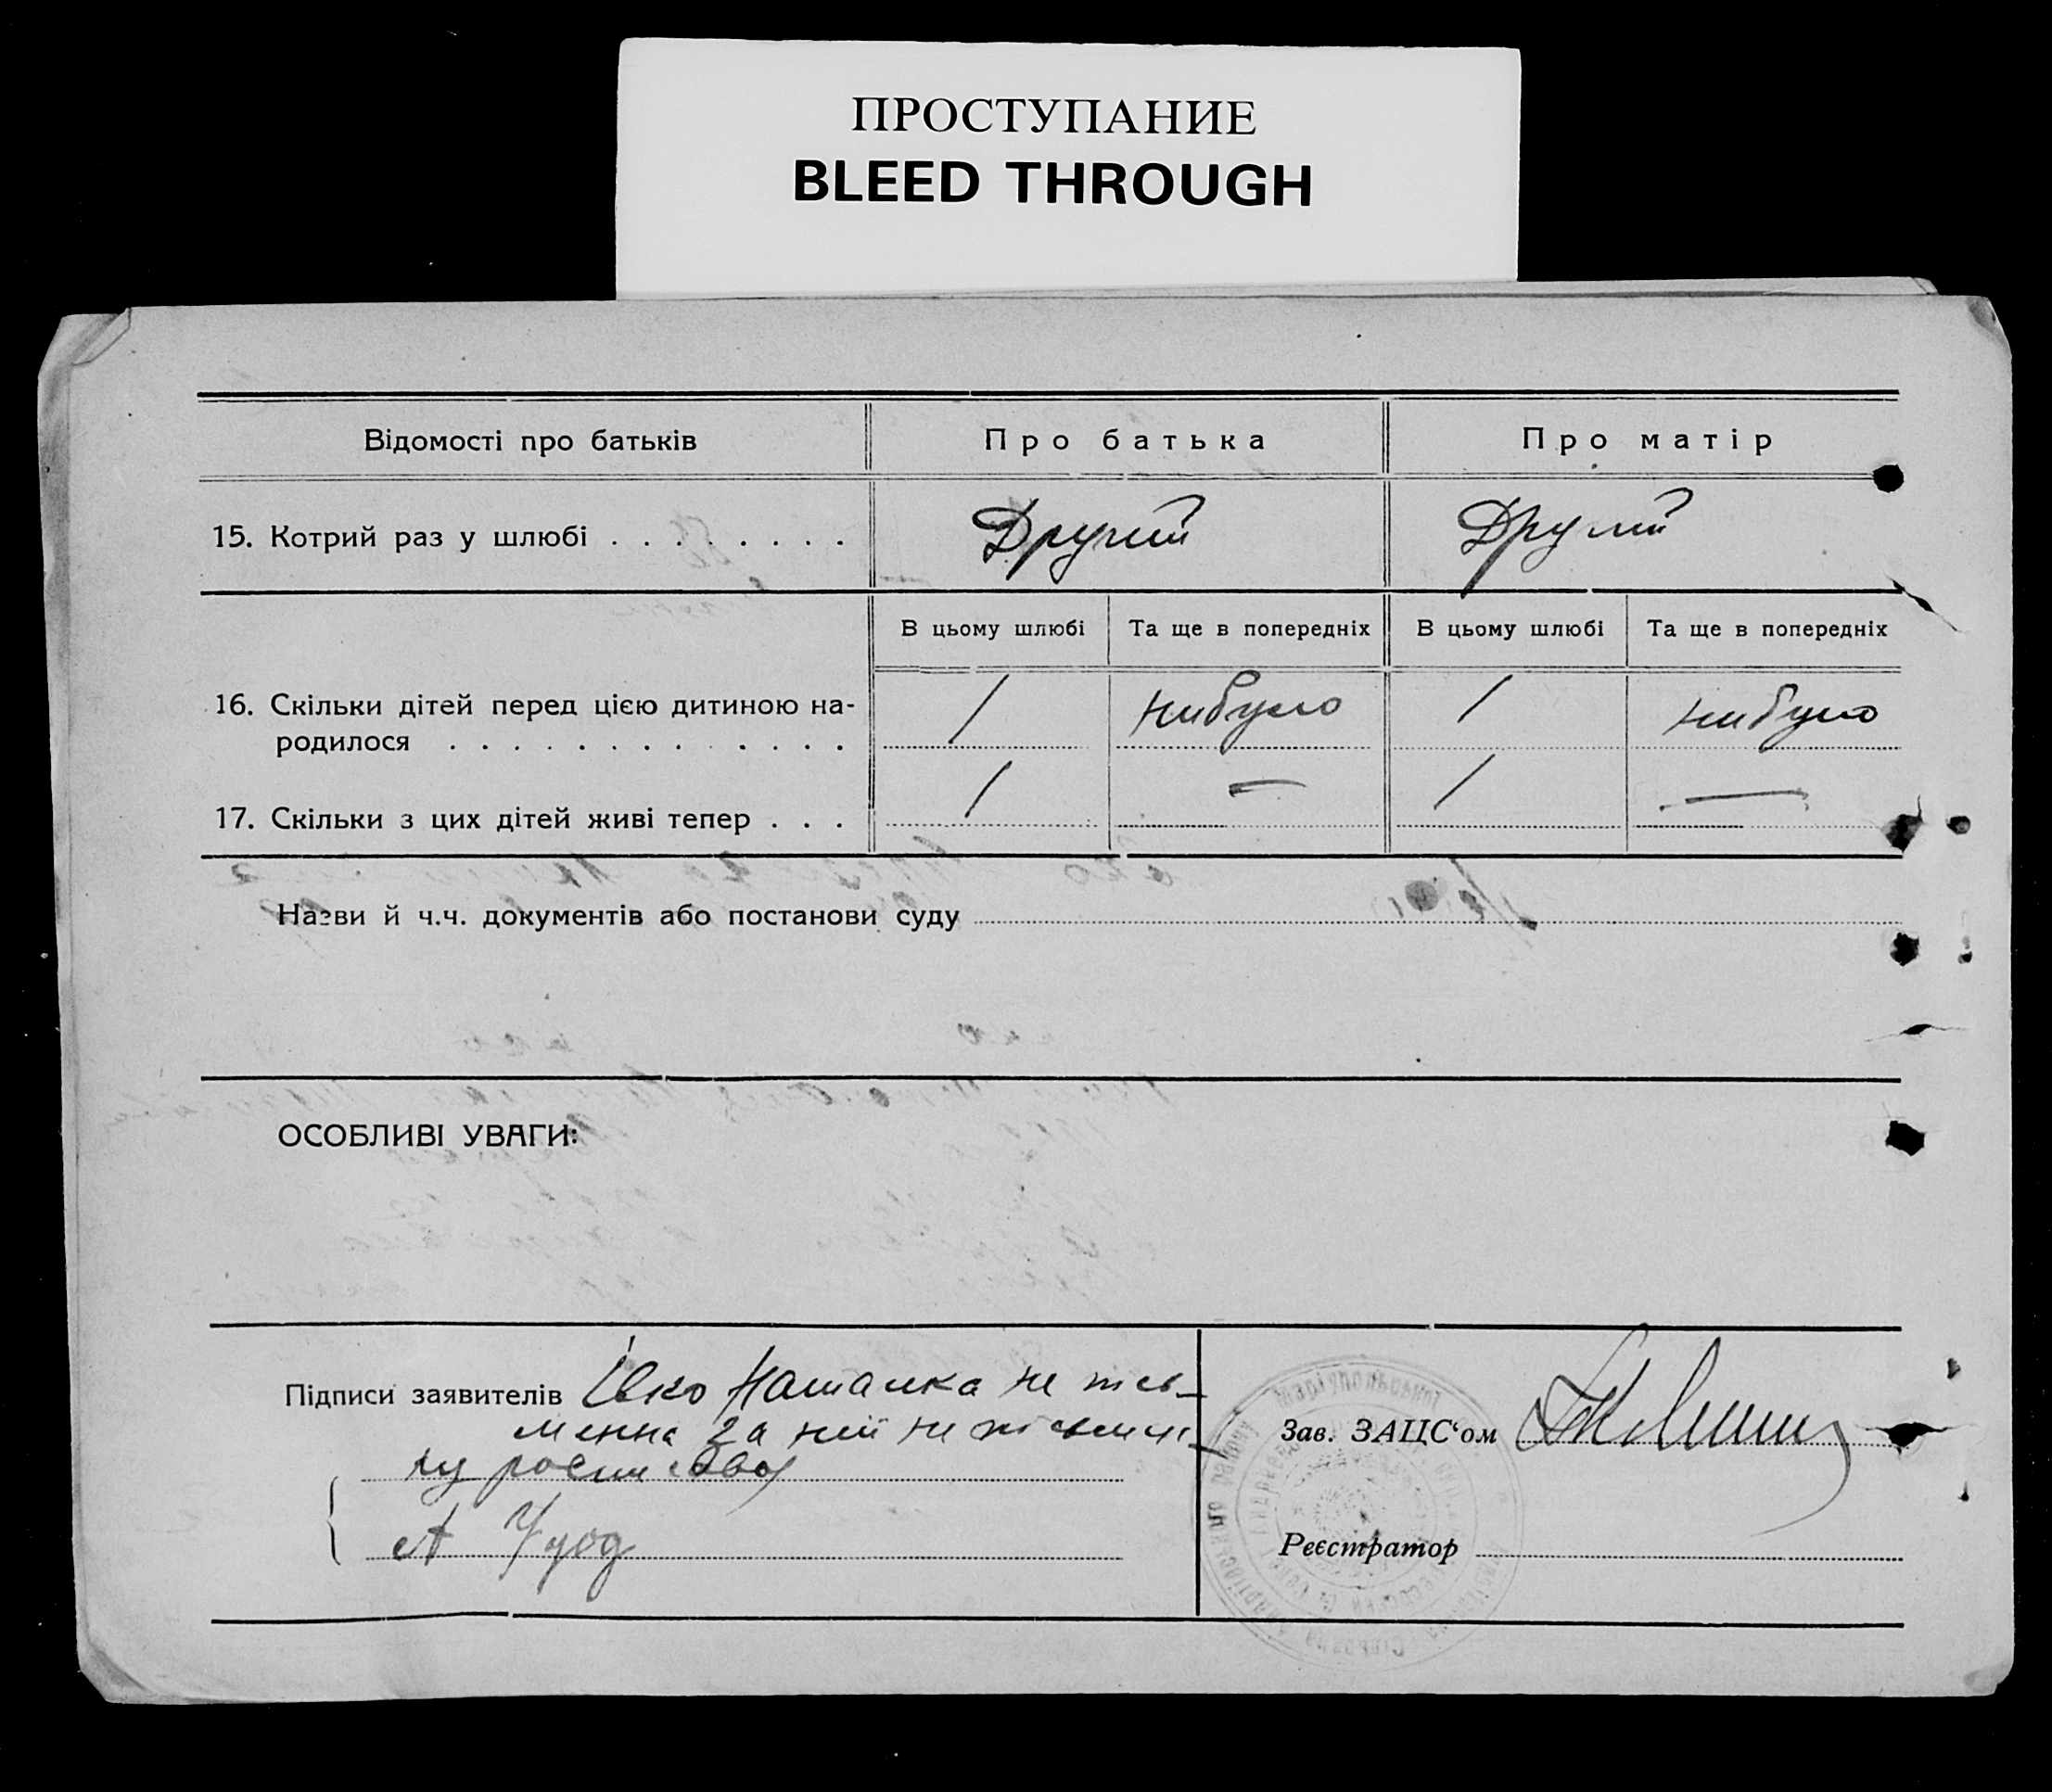 ПРОСТУПАНИЕ
BLEED THROUGH
Відомості про батьків
Про батька
Про матір
15. Котрий раз у шлюбі . . . . . . . .
Другий
Другий
В цьому шлюбі
Та ще в попередніх
В цьому шлюбі
Та ще в попередніх
16. Скільки дітей перед цією дитиною на-
родилося . . . . . . . . . . . . .
1
нибуло
1
нибуло
17. Скільки з цих дітей живі тепер . . .
1
—
1
—
Назви й ч.ч. документів або постанови суду
ОСОБЛИВІ УВАГИ:
Підписи заявителів
Наталка не пісь-
менна за ній не пісьмен-
ну росписавсь
Зав. ЗАЦС‘ом
Реєстратор
Маріупольської